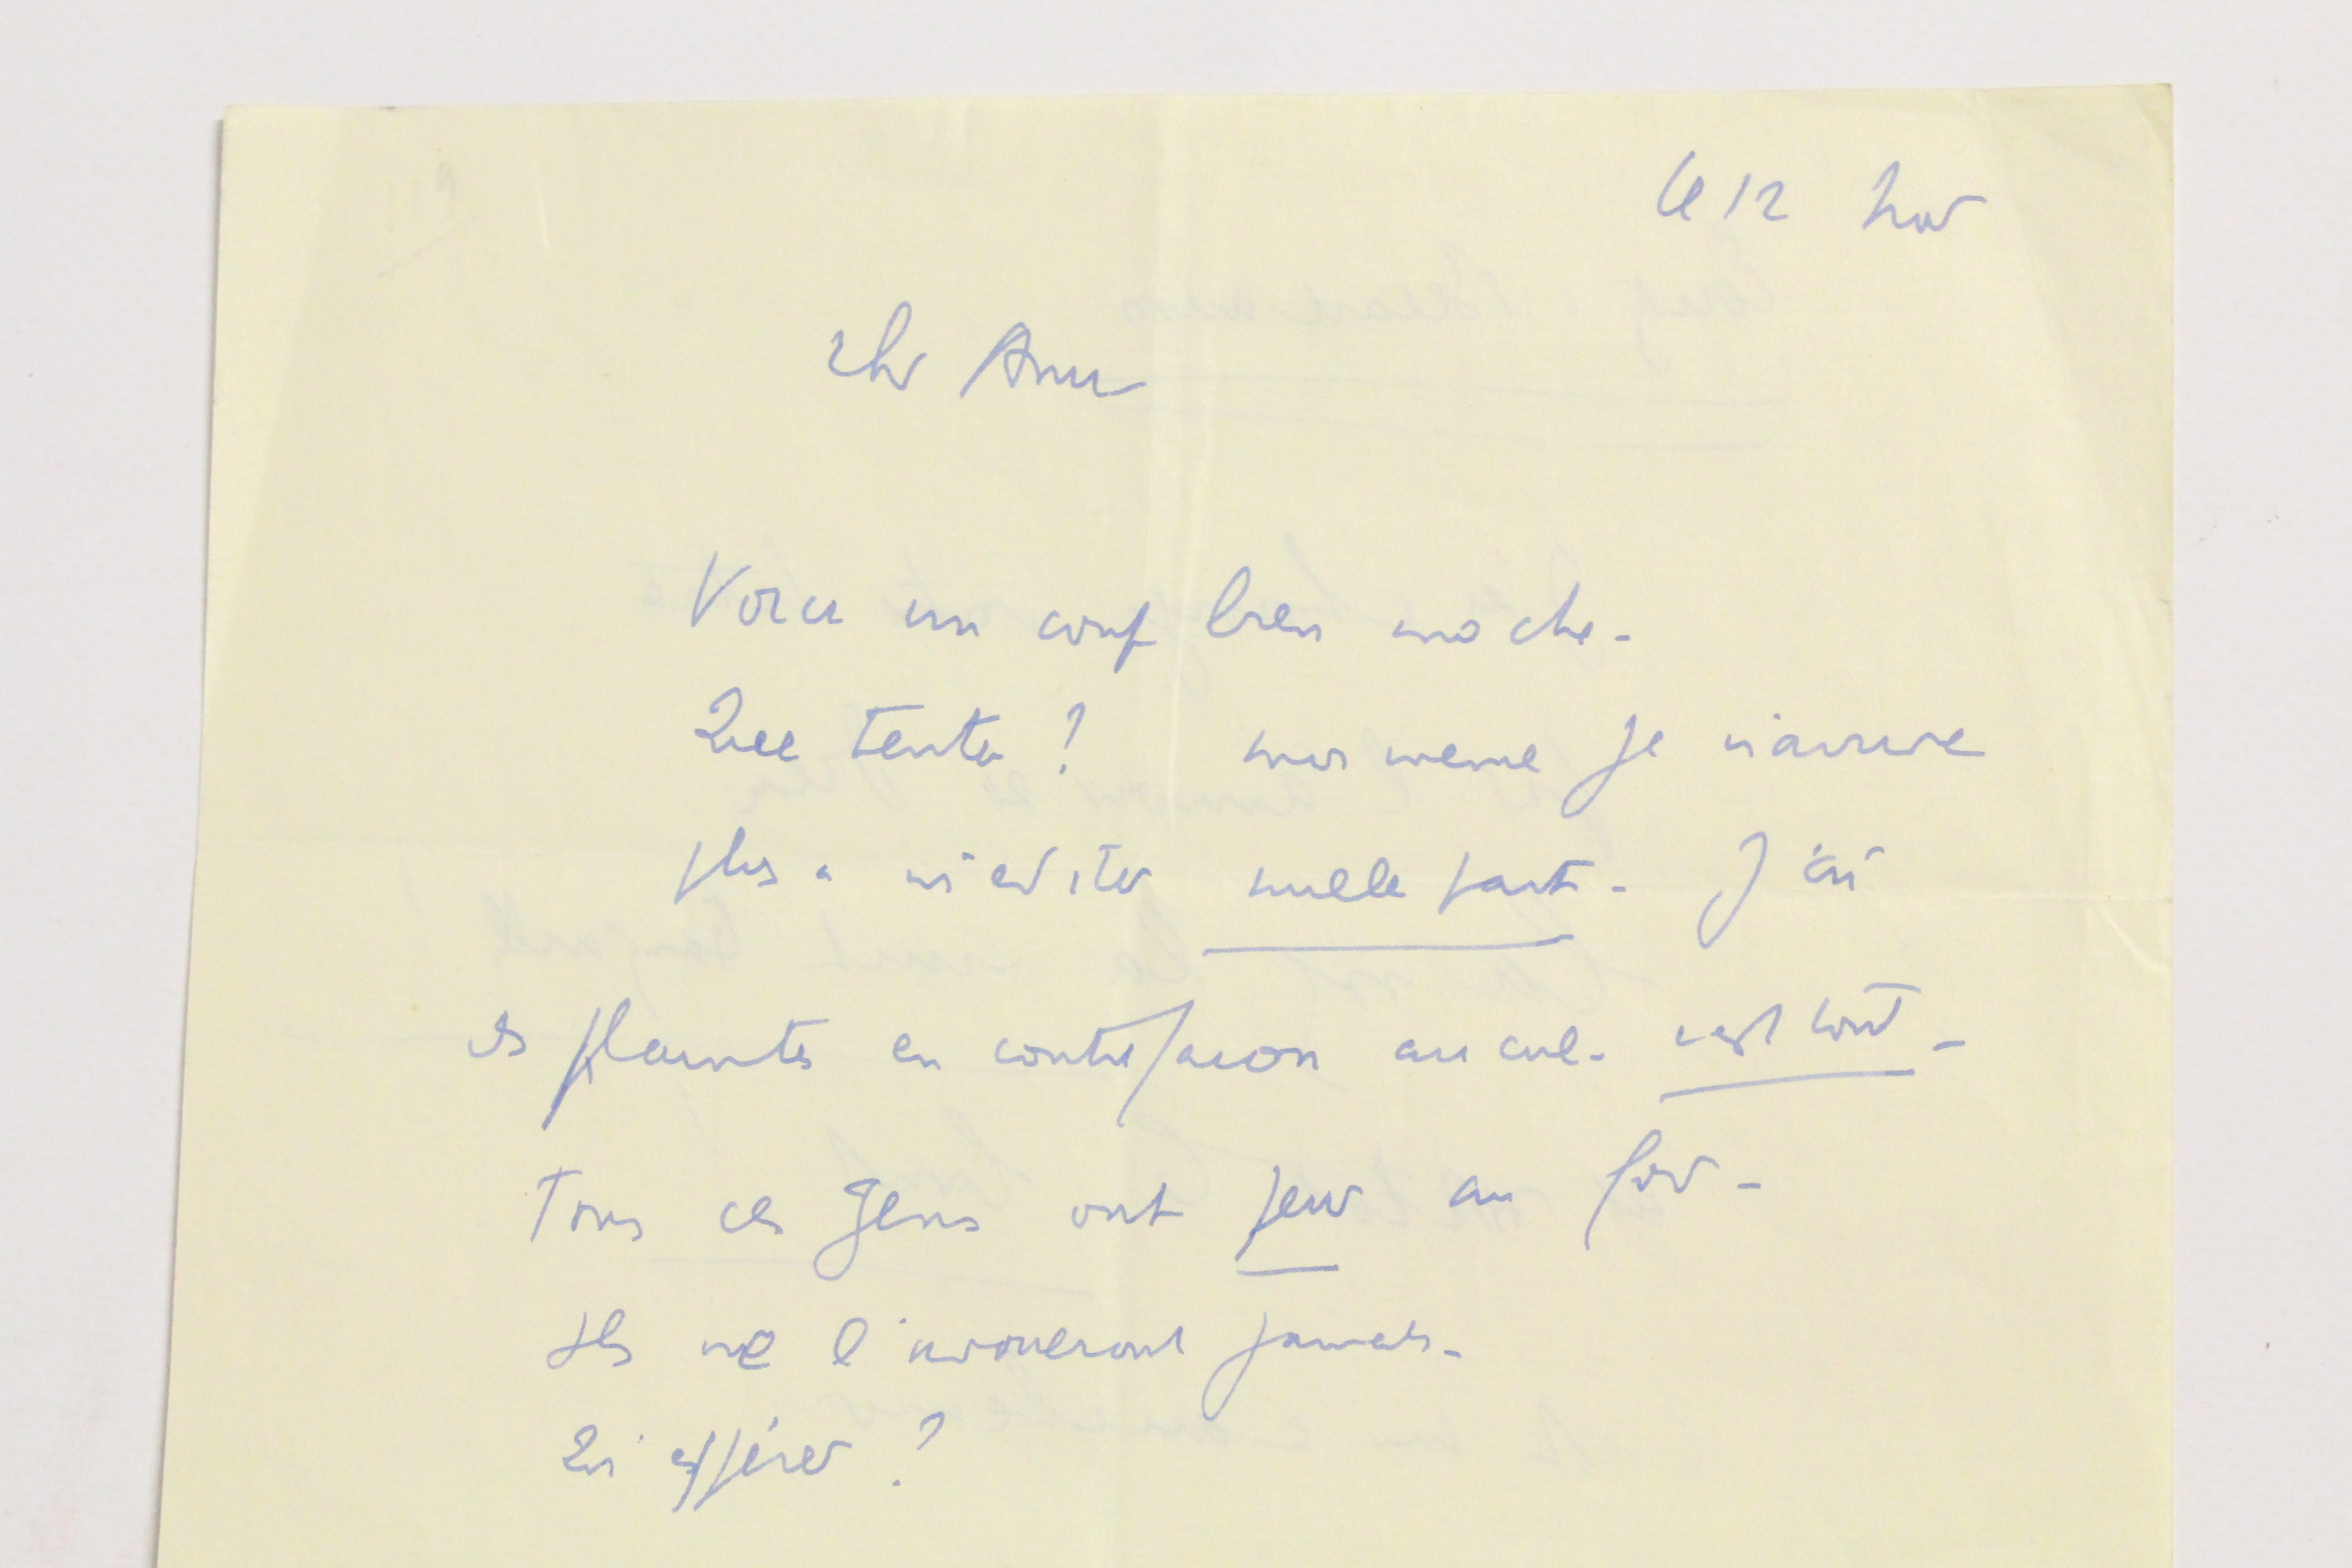 Le 12 Nov
Cher Ami
Voici un coup bien moche.
Que tenter ? moi même je n'arrive
plus à m'éditer nulle part. J'ai
les plaintes en contrefaçon au cul. c'est tout.
Tous ces gens ont peur au fond.
Ils ne l'avoueront jamais.
Qu'espérer ?